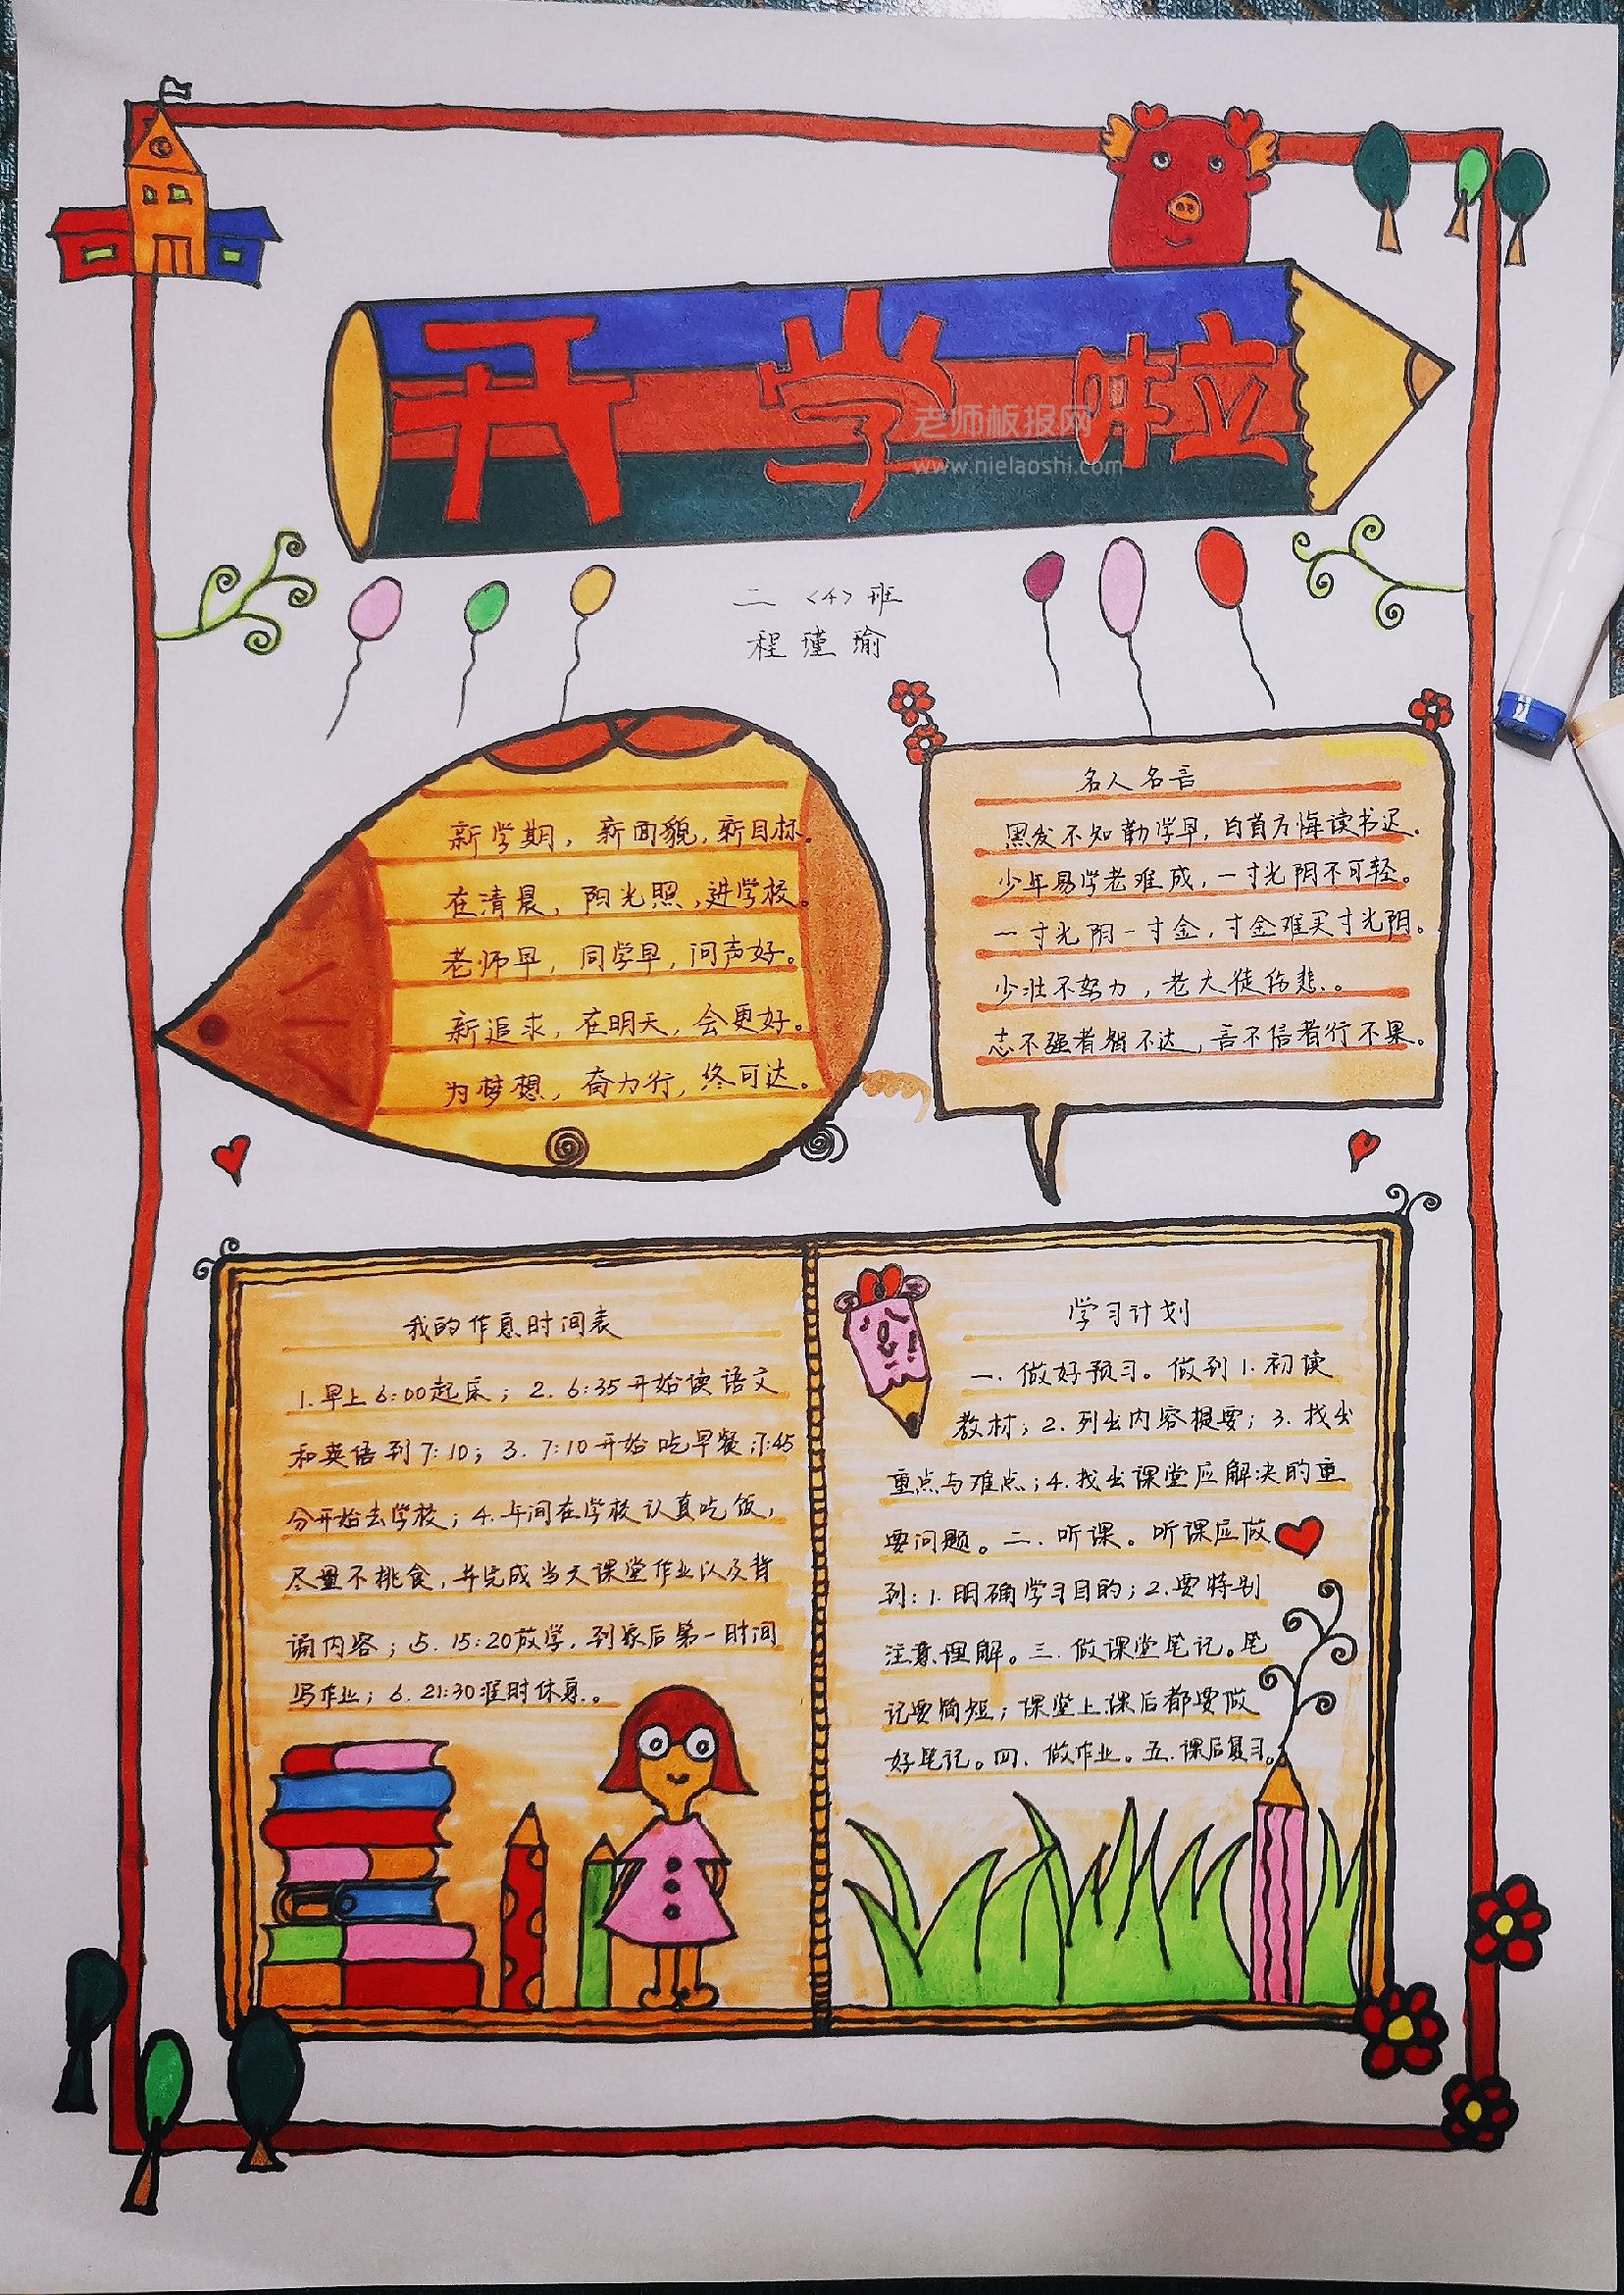 开学啦
老师板报网
www.nielaoshi.com
二〈4〉班
程瑾瑜
新学期，新面貌，新目标。
在清晨，阳光照，进学校。
老师早，同学早，问声好。
新追求，在明天，会更好。
为梦想，奋力行，终可达。
名人名言
黑发不知勤学早，白首方悔读书迟。
少年易学老难成，一寸光阴不可轻。
一寸光阴一寸金，寸金难买寸光阴。
少壮不努力，老大徒伤悲。
志不强者智不达，言不信者行不果。
我的作息时间表
1.早上6:00起床；2.6:35开始读语文
和英语到7:10；3.7:10开始吃早餐；7:45
分开始去学校；4.午间在学校认真吃饭，
尽量不挑食，并完成当天课堂作业以及背
诵内容；5.15:20放学，到家后第一时间
写作业；6.21:30准时休息。
学习计划
一.做好预习。做到1.初读
教材；2.列出内容提要；3.找出
重点与难点；4.找出课堂应解决的重
要问题。二.听课。听课应做
到：1.明确学习目的；2.要特别
注意理解。三.做课堂笔记。笔
记要简短；课堂上课后都要做
好笔记。四.做作业。五.课后复习。